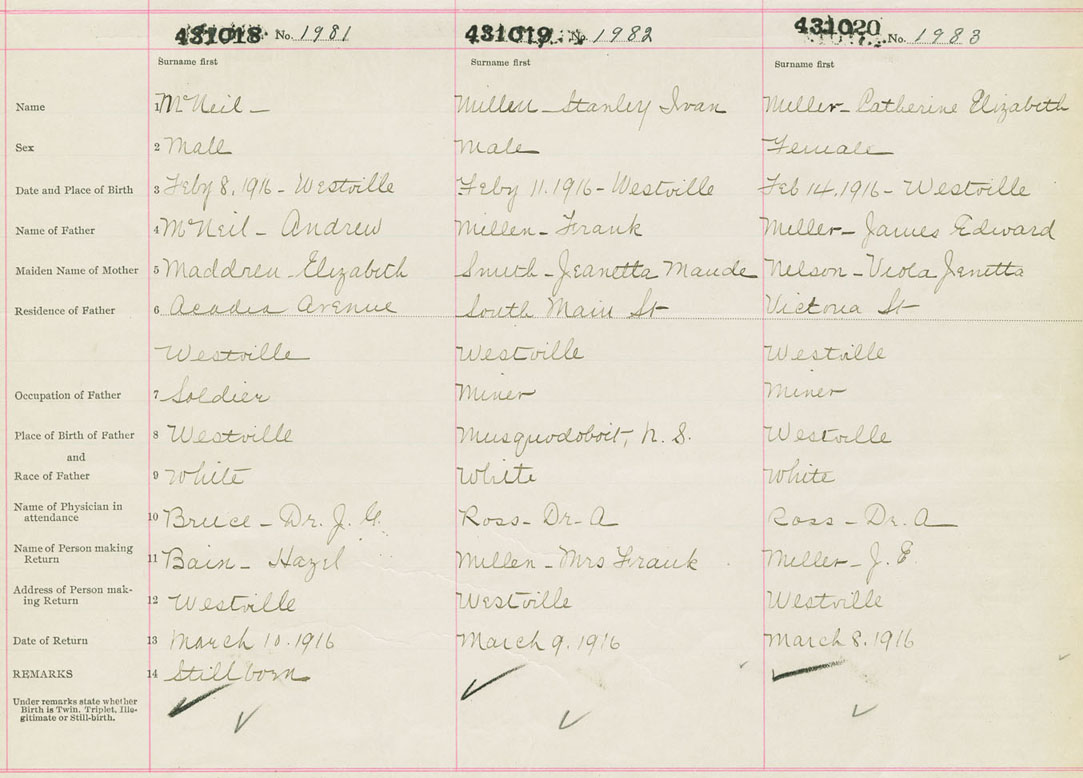 431018 No. 1981 431019 No. 1982 431020 No. 1983
Surname first Surname first Surname first
Name 1 McNeil – Millen – Stanley Ivan Miller – Catherine Elizabeth
Sex 2 Male Male Female
Date and Place of Birth 3 Feby 8, 1916 – Westville Feby 11. 1916 – Westville Feb 14. 1916 – Westville
Name of Father 4 McNeil – Andrew Millen – Frank Miller – James Edward
Maiden Name of Mother 5 Maddren – Elizabeth Smith – Jeanetta Maude Nelson – Viola Jenetta
Residence of Father 6 Acadia Avenue South Main St Victoria St
Westville Westville Westville
Occupation of Father 7 Soldier Miner Miner
Place of Birth of Father 8 Westville Musquodoboit, N. S. Westville
and
Race of Father 9 White White White
Name of Physician in
attendance 10 Bruce – Dr. J. G. Ross – Dr – A Ross – Dr. A
Name of Person making
Return 11 Bain – Hazel Millen – Mrs Frank Miller – J. E.
Address of Person mak-
ing Return 12 Westville Westville Westville
Date of Return 13 March 10. 1916 March 9. 1916 March 8. 1916
REMARKS 14 Stillborn
Under remarks state whether
Birth is Twin, Triplet, Ille-
gitimate or Still-birth.